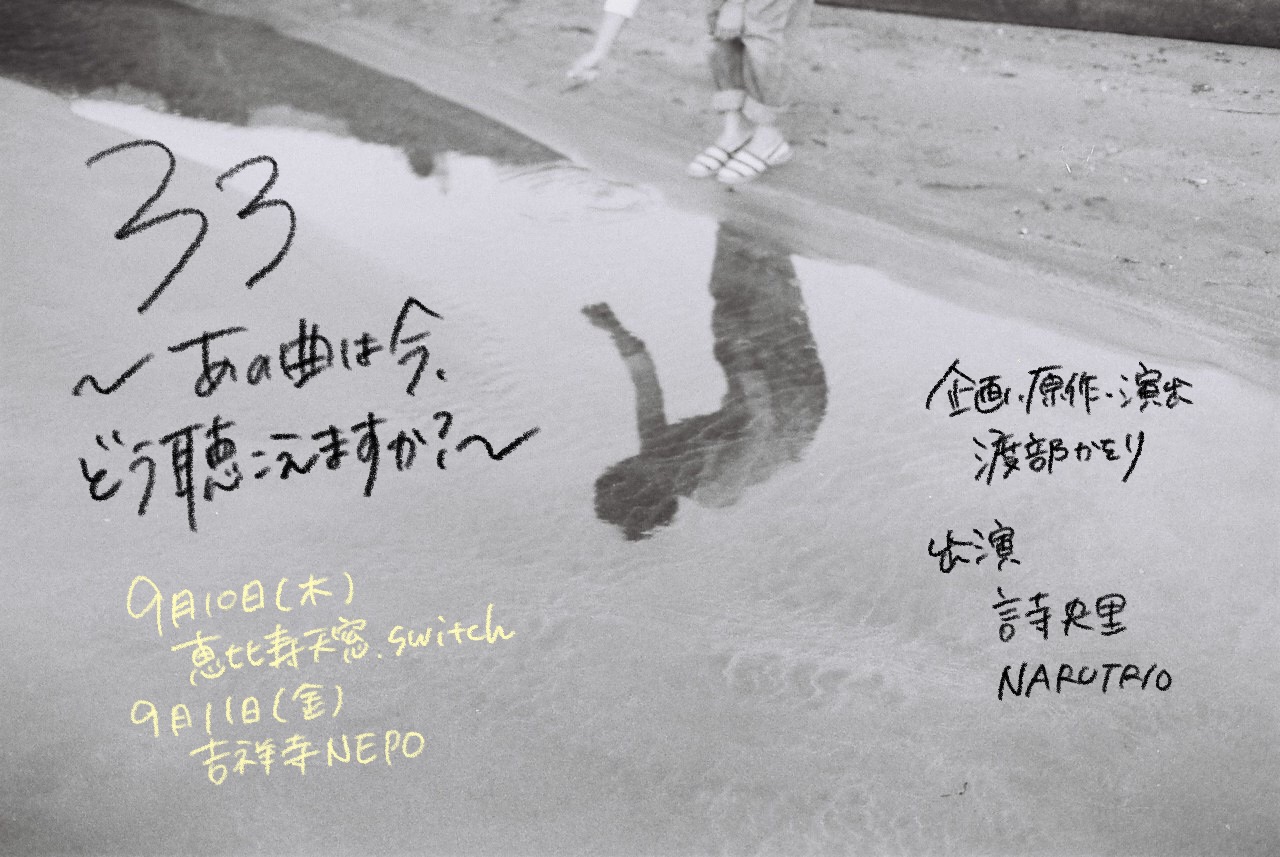 33
～あの曲は今、
どう聴こえますか?～
9月10日(木)
恵比寿天窓.switch
9月11日(金)
吉祥寺NEPO
企画、原作、演出
渡部かをり
出演
詩央里
NARUTRIO